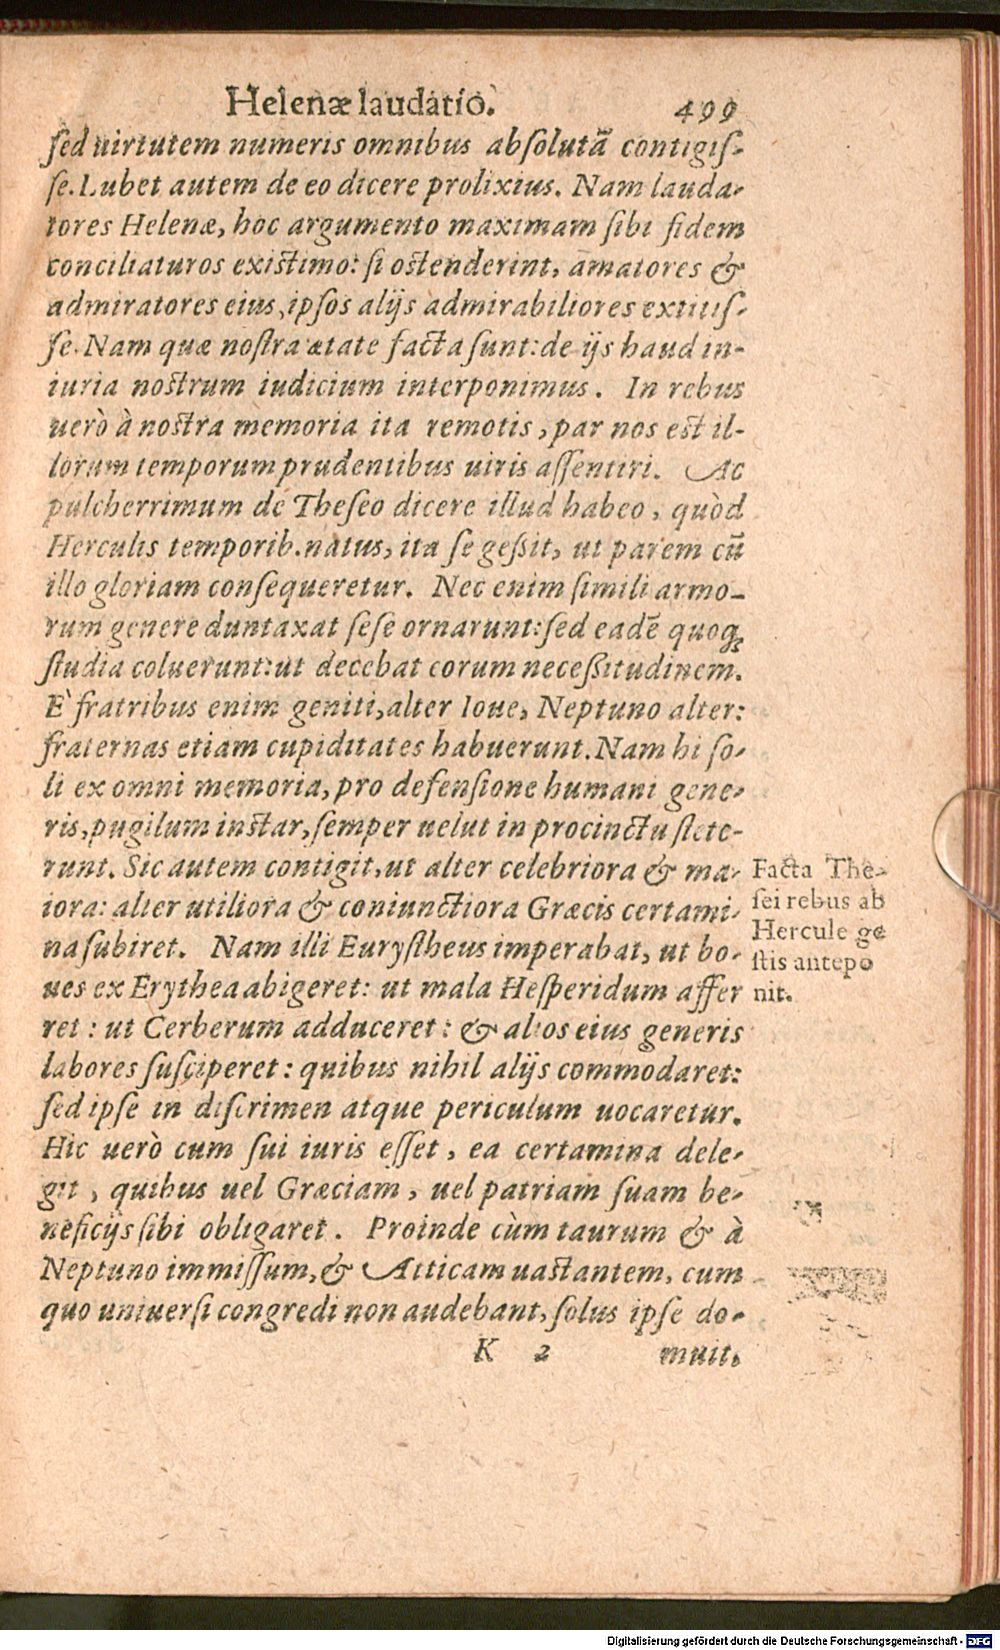 Helenæ laudatio. 499
ſed uirtutem numeris omnibus abſolutã contigiſ-
ſe. Lubet autem de eo dicere prolixius. Nam lauda-
tores Helenæ, hoc argumento maximam ſibi fidem
conciliaturos existimo: ſi ostenderint, amatores &
admiratores eius, ipſos alijs admirabiliores extitiſ-
ſe. Nam quæ noſtra ætate facta ſunt: de ijs haud in-
iuria nostrum iudicium interponimus. In rebus
uerò à nostra memoria ita remotis, par nos est il-
lorum temporum prudentibus uiris aſſentiri. Ac
pulcherrimum de Theſeo dicere illud habeo, quòd
Herculis temporib. natus, ita ſe geßit, ut parem cũ
illo gloriam conſequeretur. Nec enim ſimili armo-
rum genere duntaxat ſeſe ornarunt: ſed eadẽ quoq;
ſtudia coluerunt: ut decebat eorum neceßitudinem.
E` fratribus enim geniti, alter Ioue, Neptuno alter:
fraternas etiam cupiditates habuerunt. Nam hi ſo-
li ex omni memoria, pro defenſione humani gene-
ris, pugilum instar, ſemper uelut in procinctu ſtete-
runt. Sic autem contigit, ut alter celebriora & ma-
iora: alter utiliora & coniunctiora Græcis certami-
na ſubiret. Nam illi Euryſtheus imperabat, ut bo-
ues ex Erythea abigeret: ut mala Heſperidum affer
ret: ut Cerberum adduceret: & alios eius generis
labores ſuſciperet: quibus nihil alijs commodaret:
ſed ipſe in diſcrimen atque periculum uocaretur.
Hic uerò cum ſui iuris eſſet, ea certamina dele-
git, quibus uel Græciam, uel patriam ſuam be-
neficijs ſibi obligaret. Proinde cùm taurum & à
Neptuno immiſſum, & Atticam uastantem, cum
quo uniuerſi congredi non audebant, ſolus ipſe do-
K 2 muit.
Facta The-
ſei rebus ab
Hercule ge
ſtis antepo
nit.
Digitalisierung gefördert durch die Deutsche Forschungsgemeinschaft - DFG